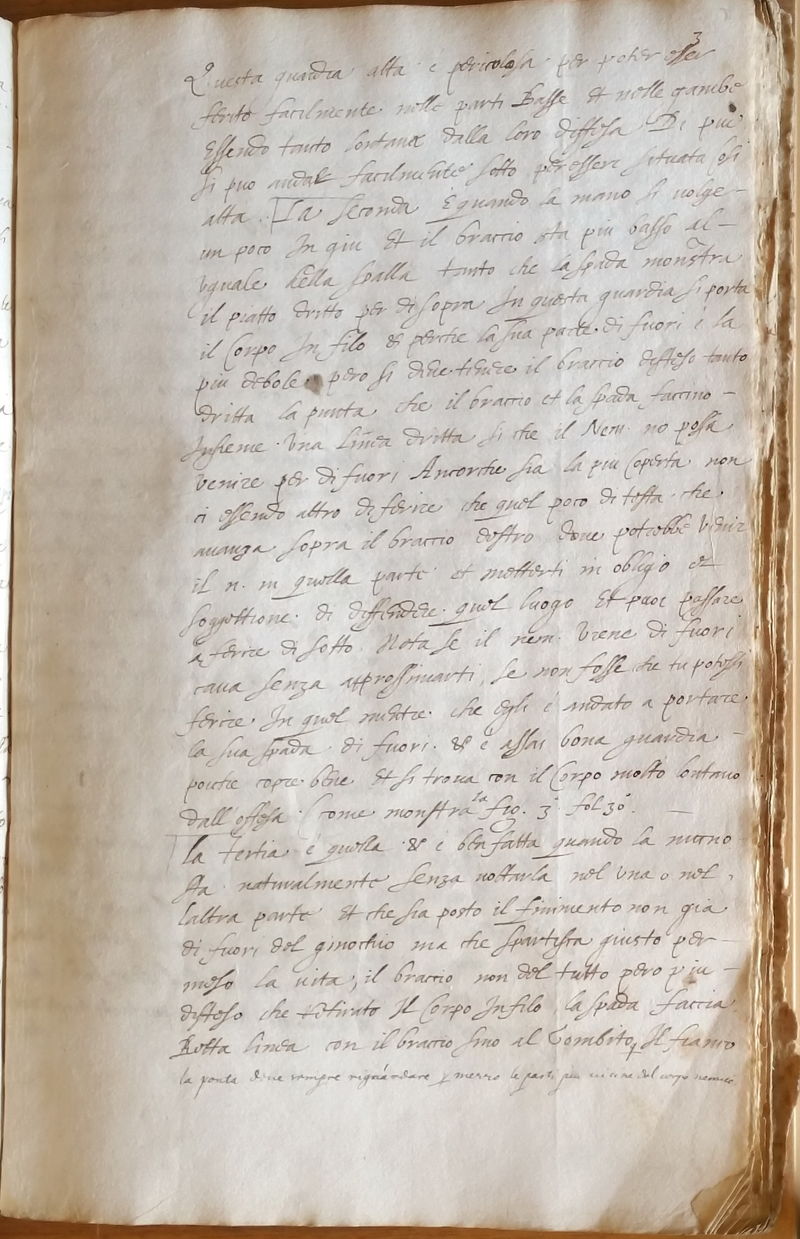 3
Questa guardia alta e pericolosa per poter esser
ferito facilmente nelle parti Basse et nelle gambe
Essendo tanto lontane dalla loro diffesa Di piu
si puo andar facilmente sotto per essere situata cosi
alta. La seconda È quando la mano si volge –
un poco In giu et il braccio sta piu basso al –
vguale della spalla tanto che la spada monstra
il piatto dritto per di sopra In questa guardia si porta
il Corpo In filo & perche la sua parte di fuori è la
piu debole però si deve tenere il braccio disteso tanto
dritta la punta che il braccio et la spada faccino –
Insieme Una linea dritta si che il Nem. no possa
venire per di fuori Ancorche sia la piu Coperta non
ci essendo altro di ferire che quel poco di testa che
auanza sopra il braccio destro doue potrebbe venir
il n. in quella parte et metterti in obligo et
soggettione di diffendere quel luogo et puoi passare
a ferire di sotto. Nota se il nem. viene di fuori
caua senza approssimarti, se non fosse che tu potessi
ferire In quel mentre che egli è andato a portare
la sua spada di fuori. & è assai bona guardia –
poiche copre bene et si troua con il Corpo molto lontano
dall offesa (come monstra la fig. 3ª fol 30. —
la tertia è quella & è ben fatta quando la mano
sta naturalmente senza voltarla nel una o nel
laltra parte et che sia posto il finimento non gia
di fuori del ginochio ma che spartisca giusto per –
meso la uita, il braccio non del tutto pero piu –
disteso che retirato Il Corpo In filo la spada faccia
Retta linea con il braccio sino al Gombito, Il fianco
la ponta deue sempre riguardare p mezzo le parti piu uicine del corpo nemico